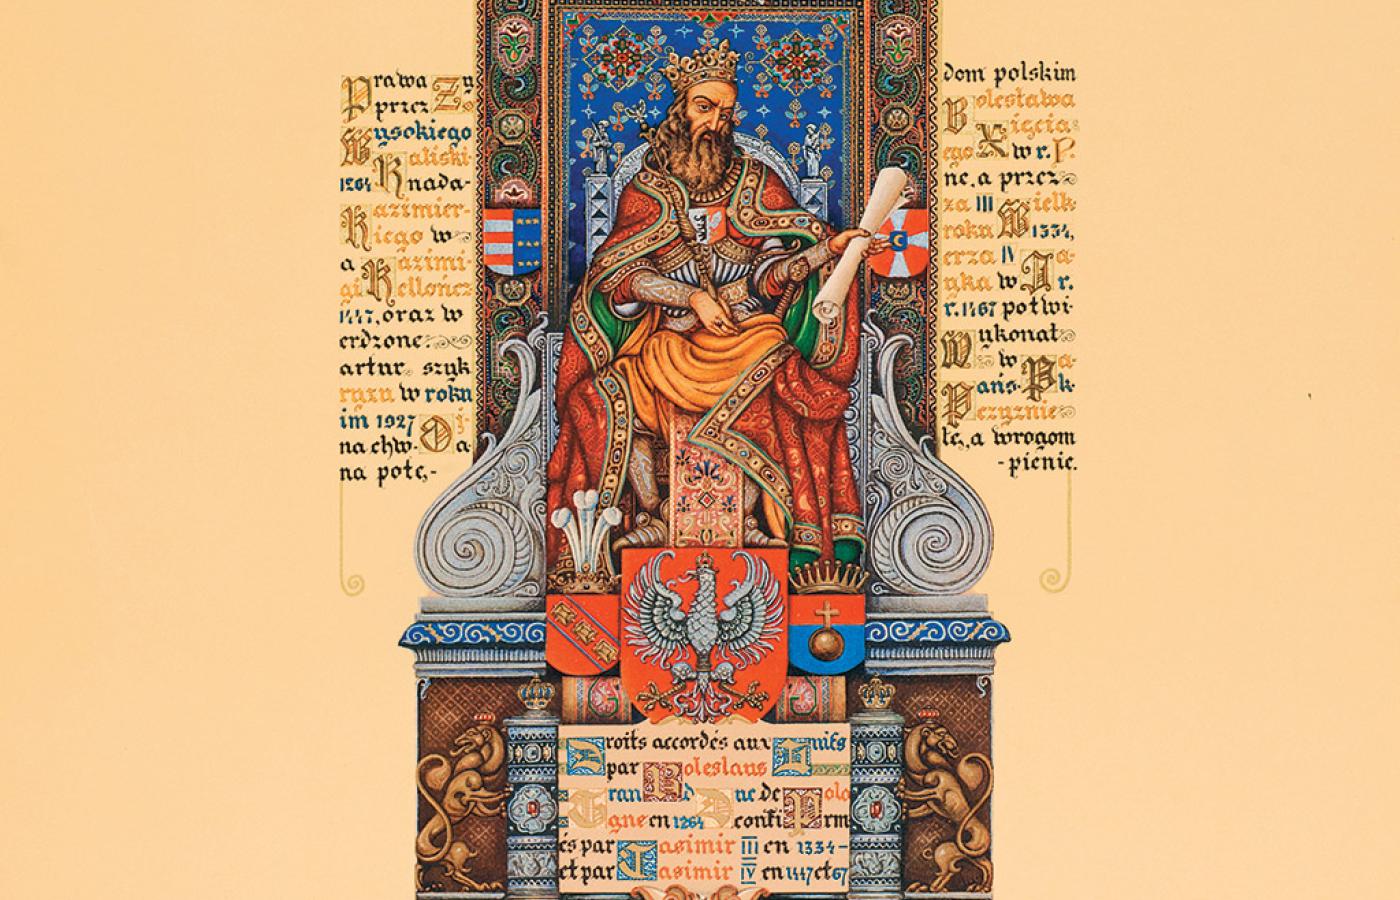 Prawa Ży dom polskim
przez Bolesława
Wysokiego Xięcia
Kaliski- ego w r. P.
1264 nada- ne, a przez
Kazimier- za III Wielk-
iego w roku 1334,
a Kazimi- erza IV Ja-
giellończ yka w r.
1447, oraz w r. 1467 potwi-
erdzone: Wykonał
artur szyk w Pa-
ryżu w roku Pańsk-
im 1927 Oj- czyznie
na chw- a- łę, a wrogom
na potę,- -pienie.
Droits accordés aux Juifs
par Boleslaus
Grand Duc de Polo
gne en 1264 confirm
és par Casimir III en 1334-
et par Casimir IV en 1447 et 67